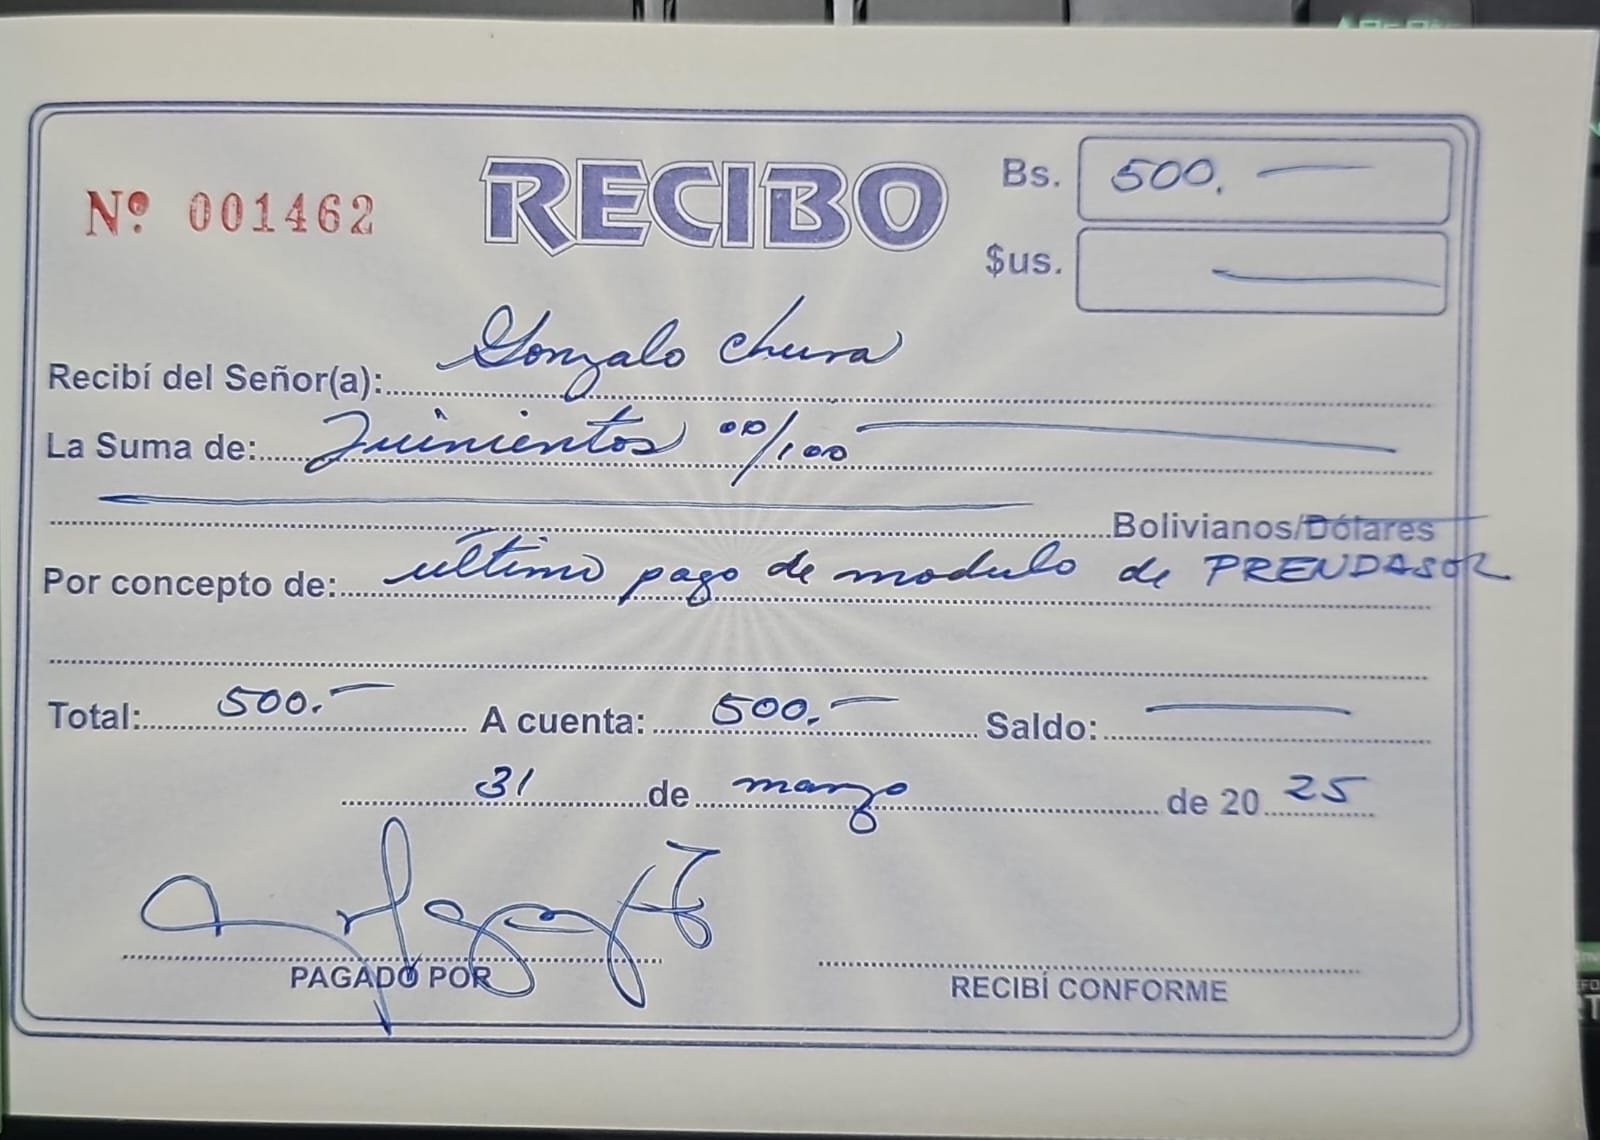 Nº 001462
RECIBO
Bs. 500.
$us.
Recibí del Señor(a): Gonzalo Chura
La Suma de: Quinientos 00/100
Bolivianos/Dólares
Por concepto de: último pago de modulo de PRENDASOR
Total: 500.- A cuenta: 500.- Saldo:
31 de marzo de 2025
PAGADO POR
RECIBÍ CONFORME